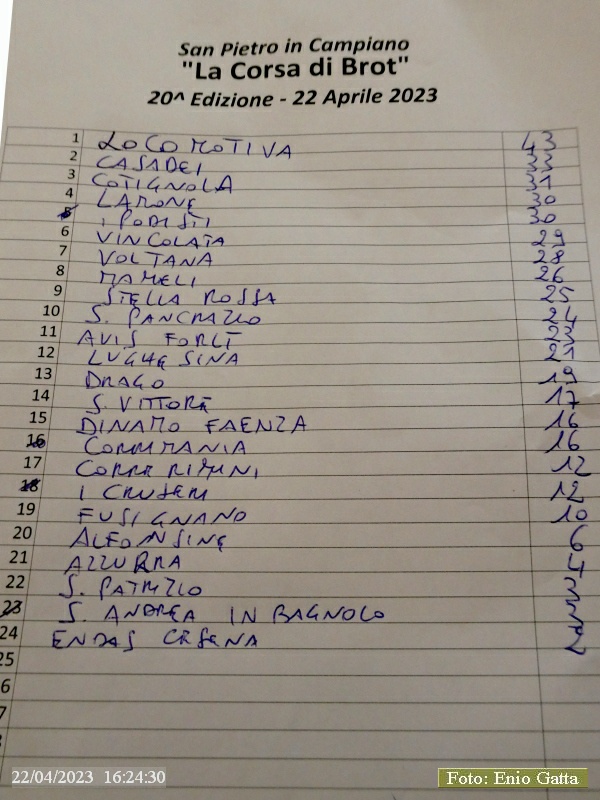 San Pietro in Campiano
"La Corsa di Brot"
20^ Edizione - 22 Aprile 2023
1 LOCOMOTIVA 43
2 CASADEI 33
3 COTIGNOLA 31
4 LAMONE 30
5 I PODISTI 30
6 VINCOLATA 29
7 VOLTANA 28
8 MAMELI 26
9 STELLA ROSSA 25
10 S. PANCRAZIO 24
11 AVIS FORLÌ 23
12 LUGHESINA 21
13 DRAGO 19
14 S. VITTORE 17
15 DINAMO FAENZA 16
16 CORRMANIA 16
17 CORRERIMINI 12
18 I CRUSEM 12
19 FUSIGNANO 10
20 ALFONSINE 6
21 AZZURRA 4
22 S. PATRIZIO 3
23 S. ANDREA IN BAGNOLO 3
24 ENDAS CESENA 2
25
6
7
22/04/2023 16:24:30
Foto: Enio Gatta